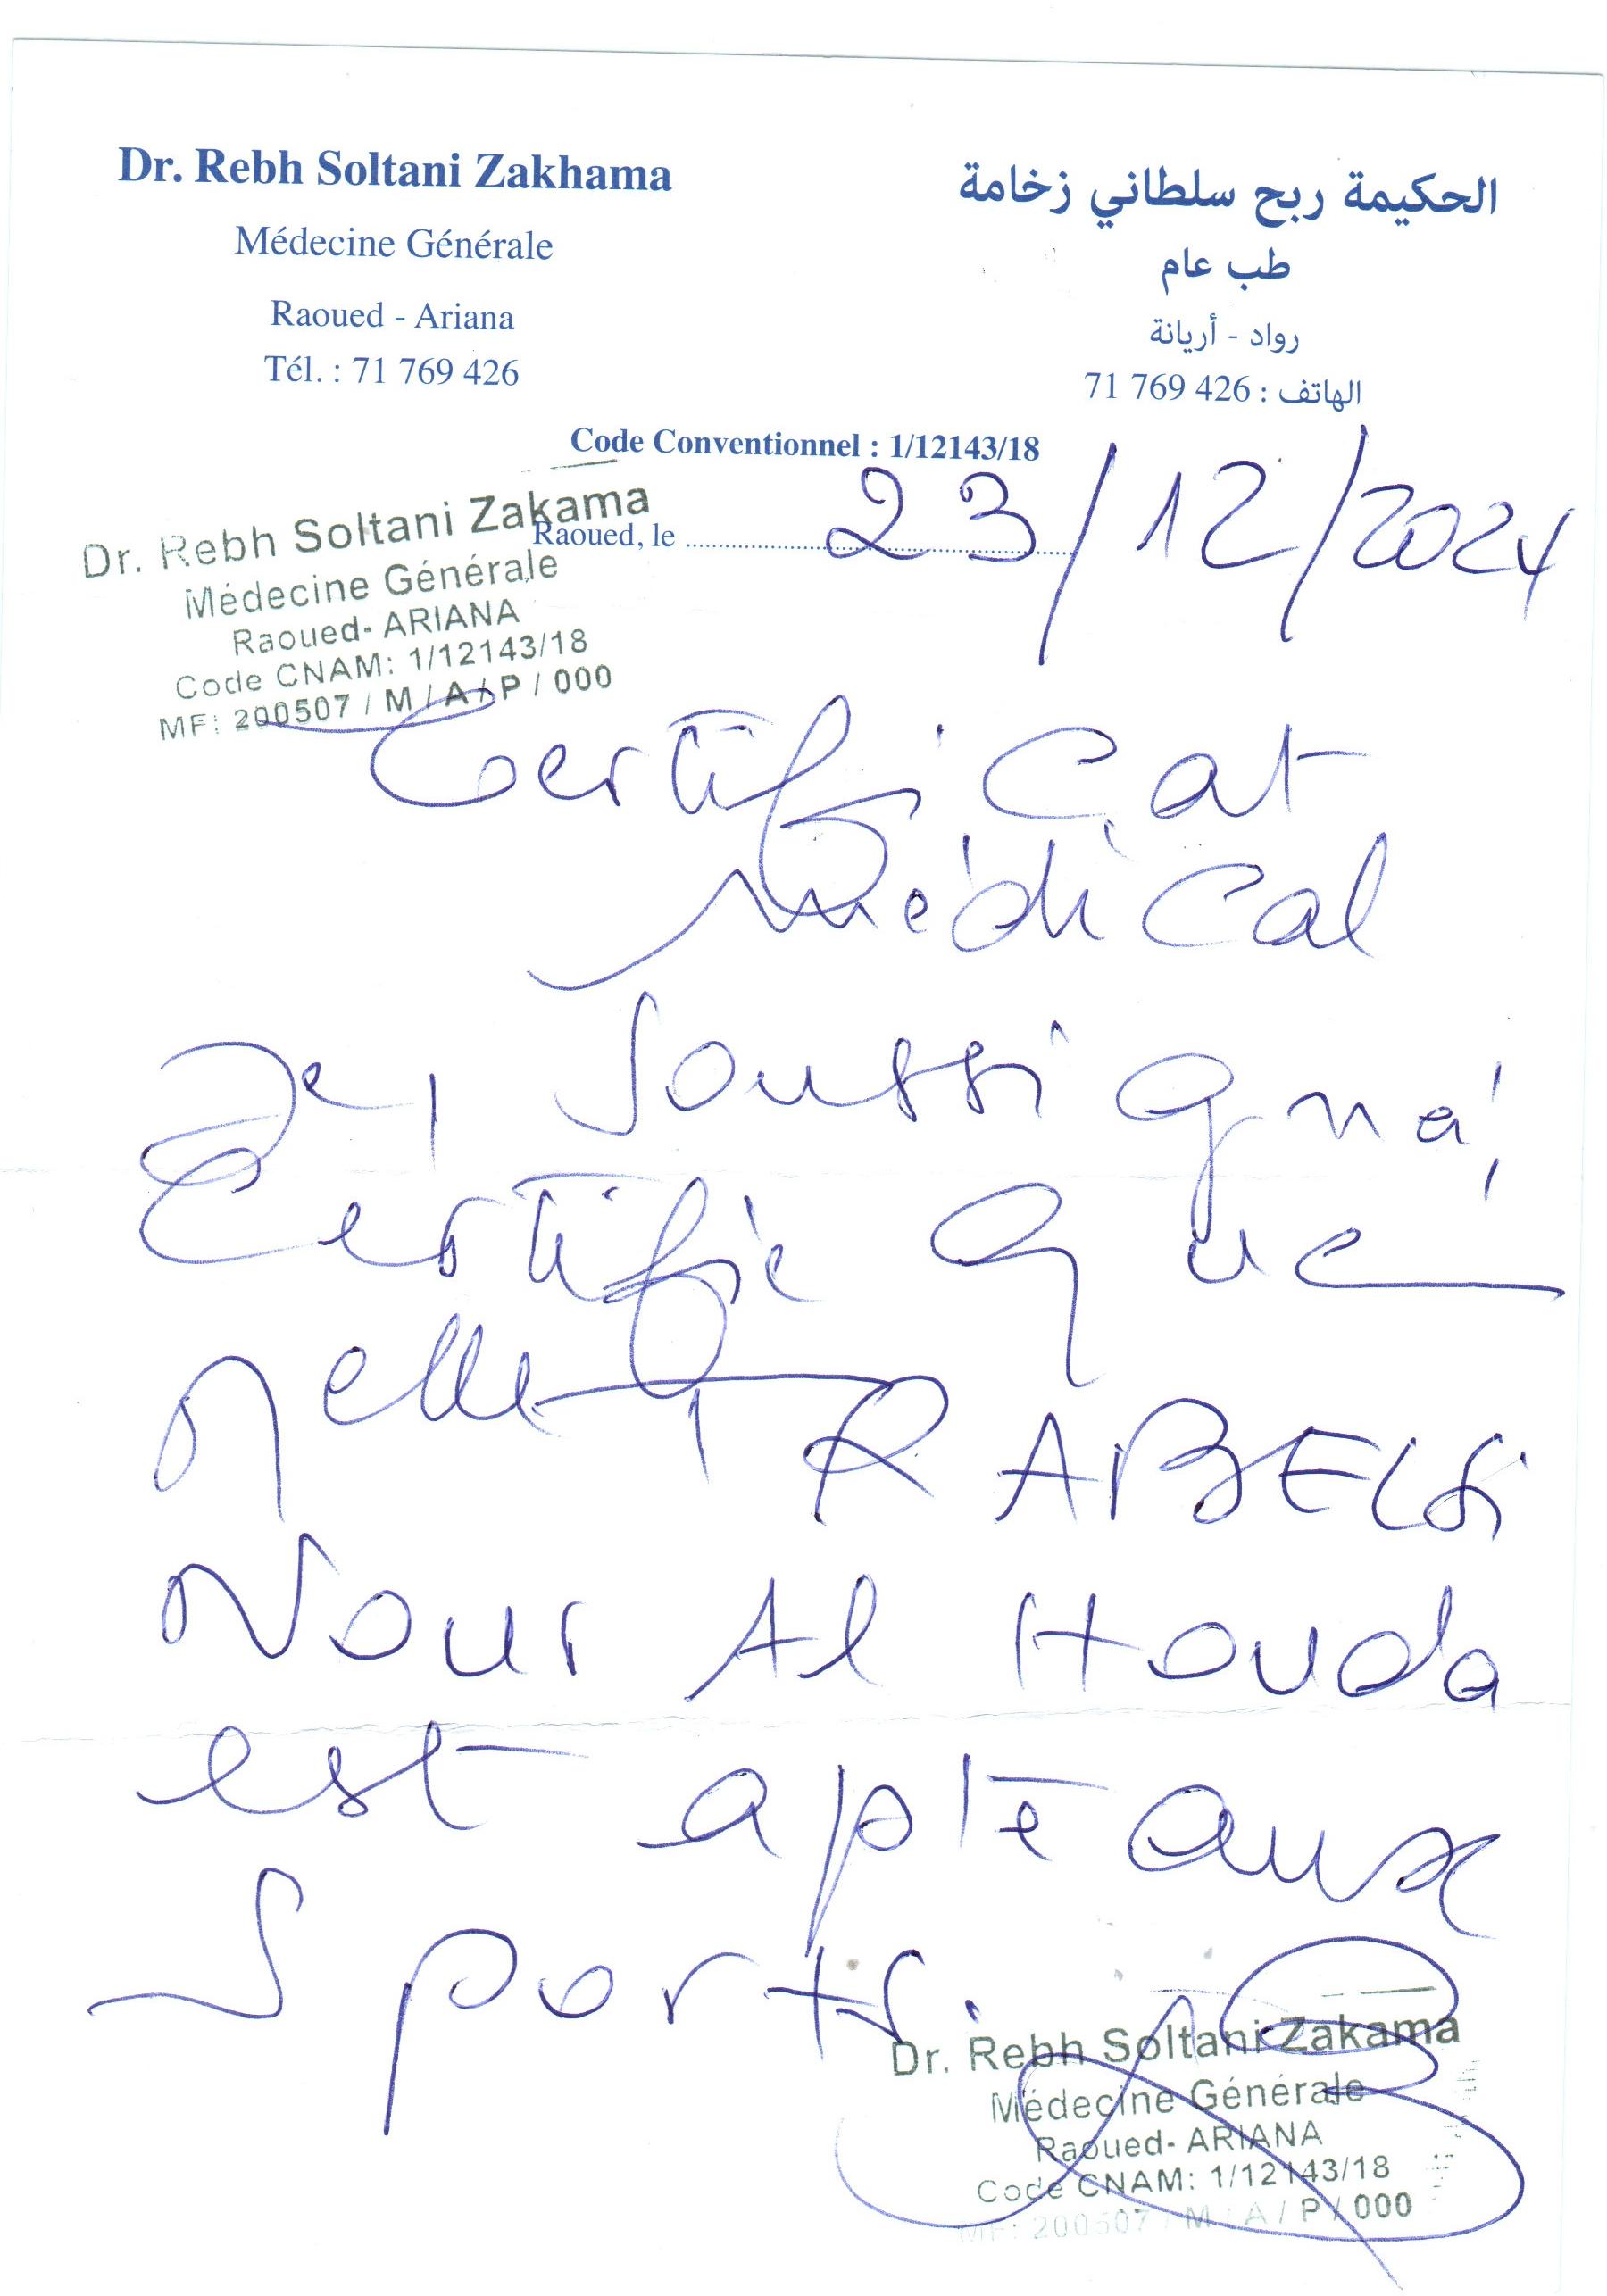 Dr. Rebh Soltani Zakhama
Médecine Générale
Raoued - Ariana
Tél. : 71 769 426
الحكيمة ربح سلطاني زخامة
طب عام
رواد - أريانة
الهاتف : 426 769 71
Code Conventionnel : 1/12143/18
Raoued, le 23/12/2024
Dr. Rebh Soltani Zakama
Médecine Générale
Raoued- ARIANA
Code CNAM: 1/12143/18
MF: 200507 / M / A / P / 000
Certificat
médical
Je, soussigné,
Certifie que
Melle TRABELSi
Nour Al Houda
est apte aux
sports.
Dr. Rebh Soltani Zakama
Médecine Générale
Raoued- ARIANA
Code CNAM: 1/12143/18
MF: 200507 / M / A / P / 000